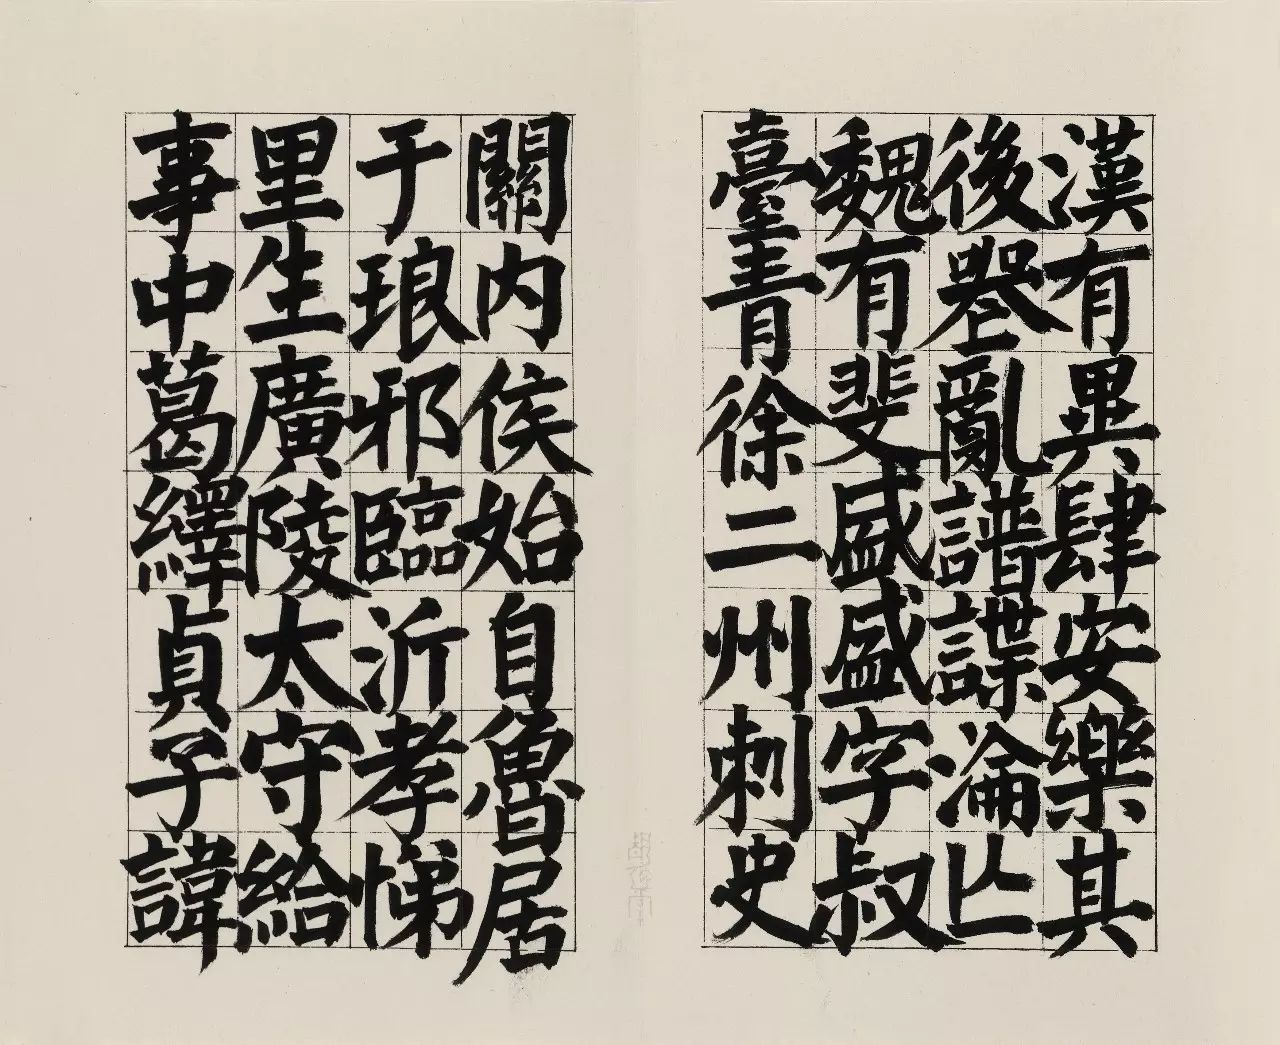 漢有異肆安樂其
後喪亂譜諜淪亾
魏有斐盛盛字叔
臺青徐二州刺史
關内侯始自魯居
于琅邪臨沂孝悌
里生廣陵太守給
事中葛繹貞子諱